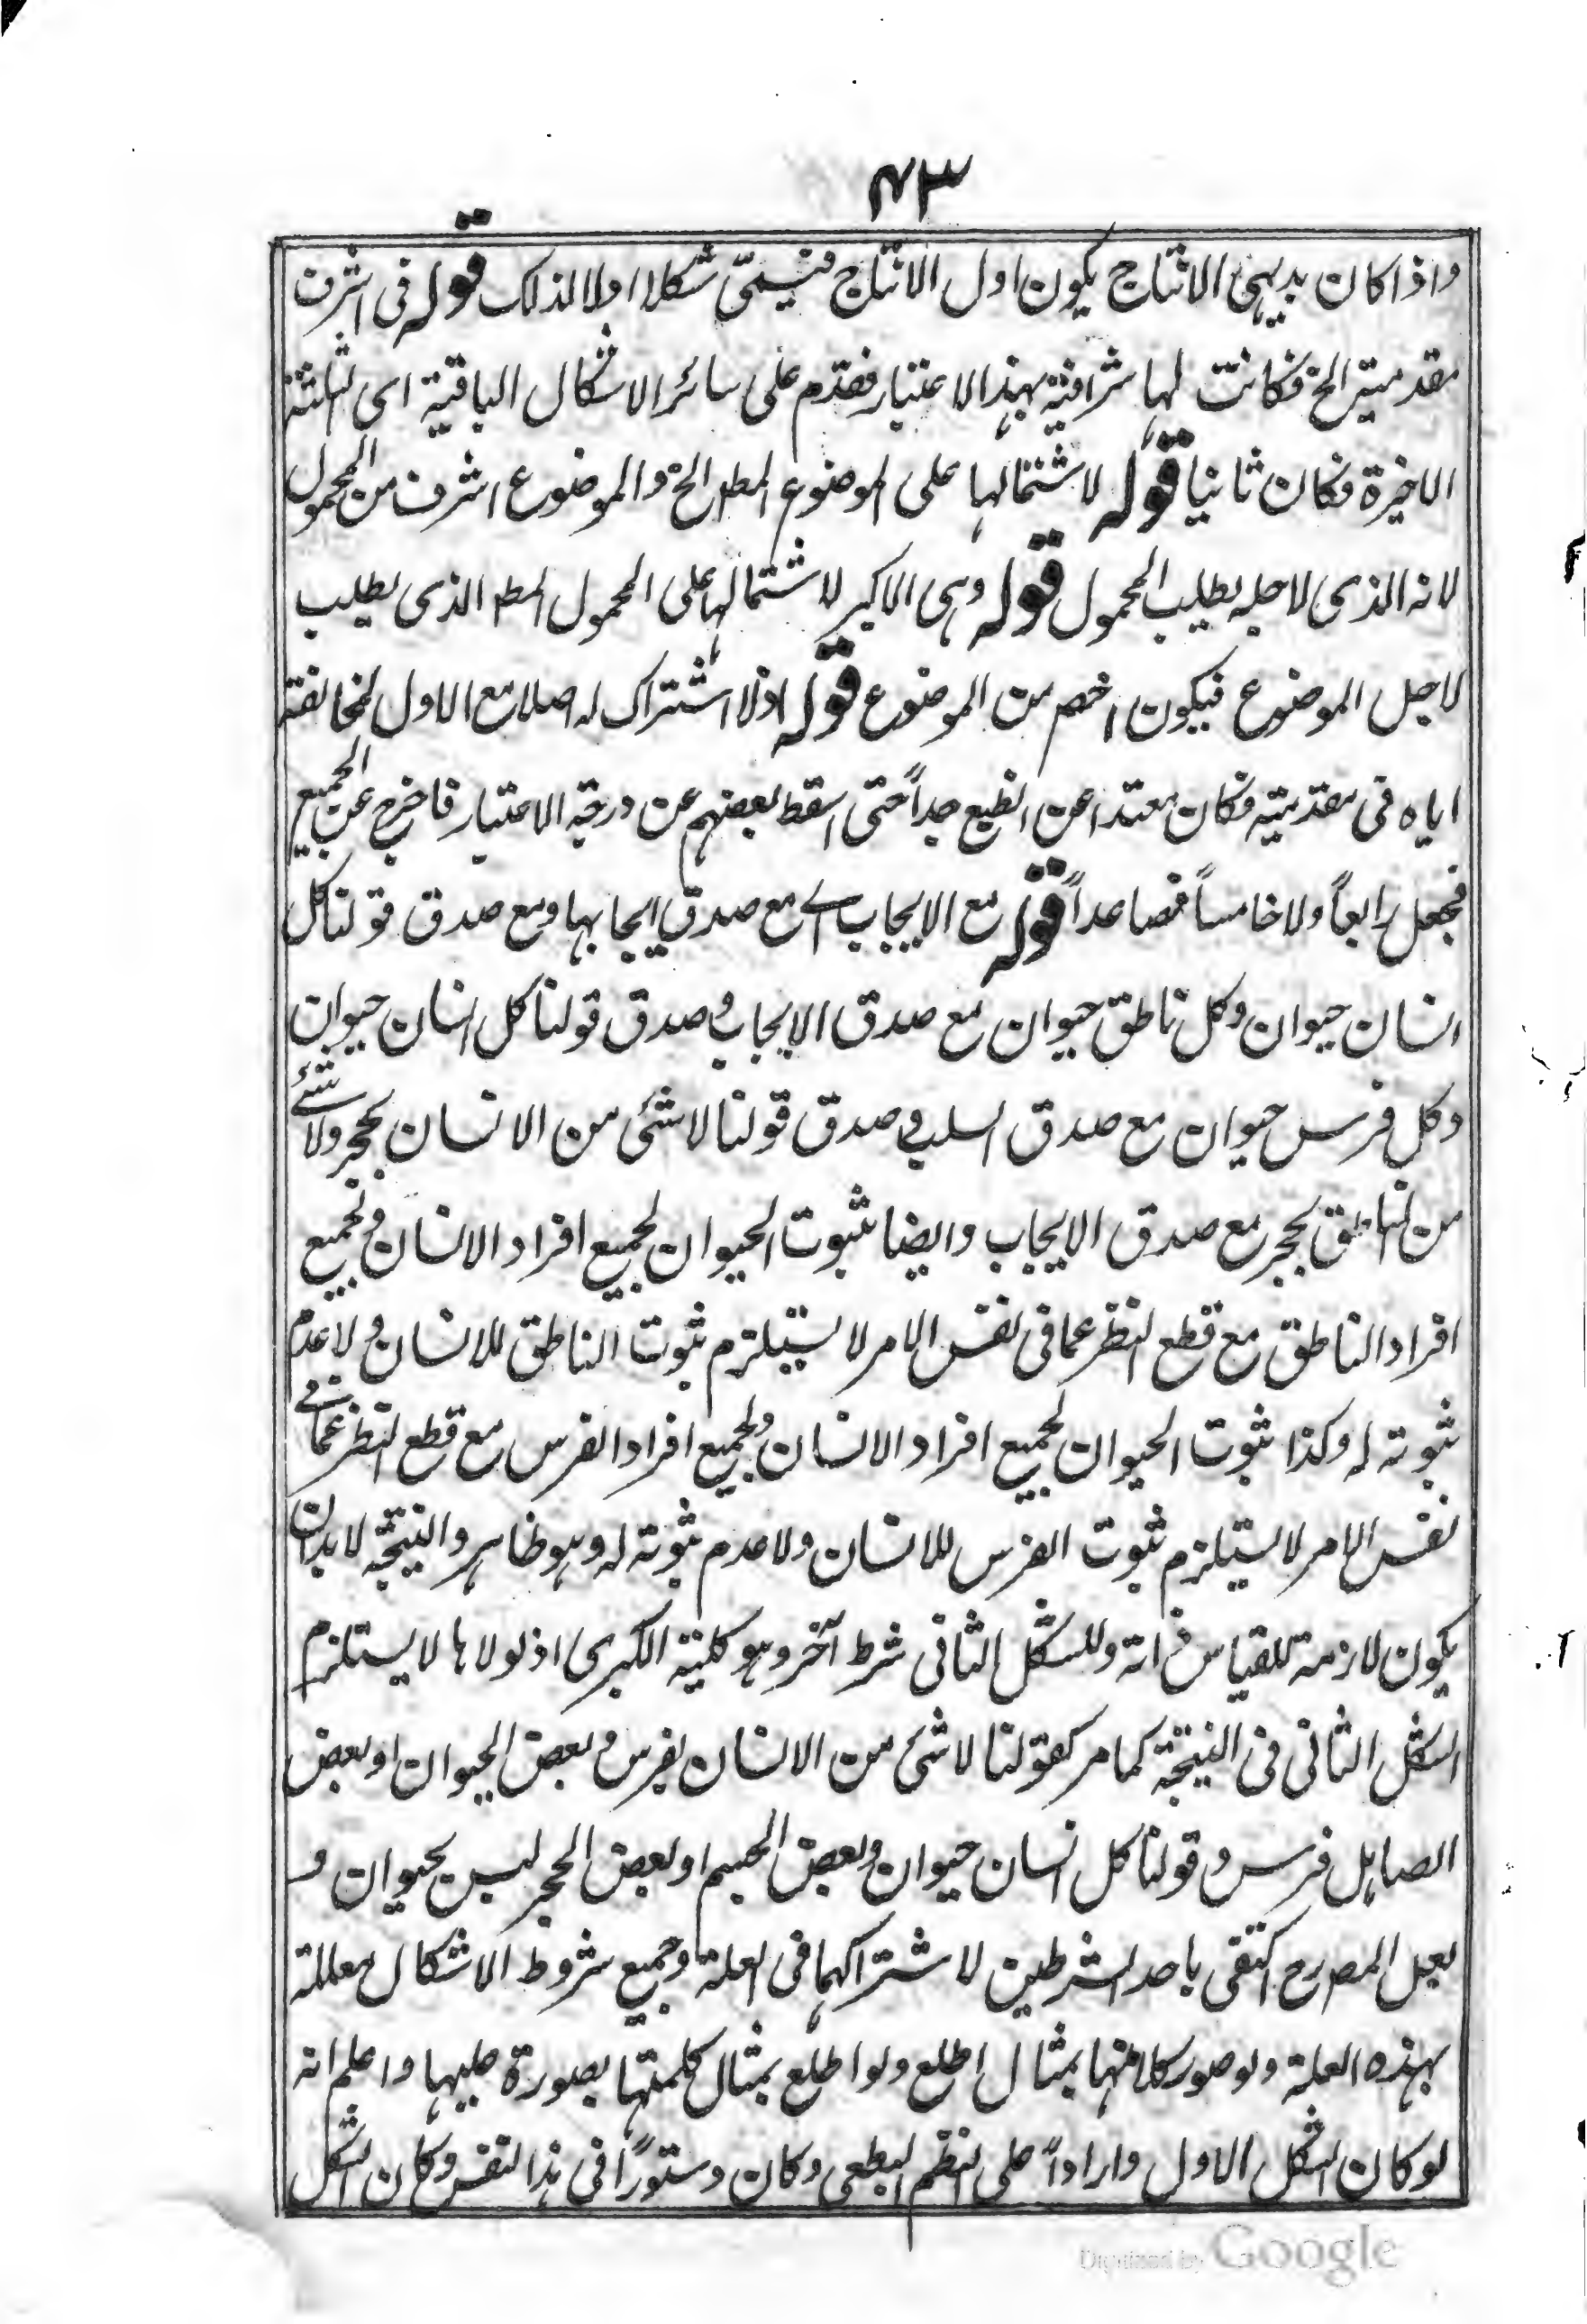 ٤٣
واذا كان بديهي الانتاج يكون اول الانتاج فيسمّى شكلا اولا لذلك قوله فى اشرف
مقدمتيه الخ فكانت لها شرافة بهذا الاعتبار فقدم على سائر الاشكال الباقية اى الثلثة
الاخيرة فكان ثانيا قوله لاشتمالها على الموضوع المطلـ الخ والموضوع اشرف من المحمول
لانه الذى لاجله يطلب المحمول قوله وهى الاكبر لاشتمالها على المحمول المطـ الذى يطلب
لاجل الموضوع فيكون اخص من الموضوع قوله اذ لا اشتراك له اصلا مع الاول لمخالفته
اياه فى مقدمتيه فكان معتدا عن الطبع جداً حتى اسقط بعضهم عن درجة الاعتبار فاخرج عن الجميع
فجعل رابعاً ولا خامساً فصاعداً قوله مع الايجاب اے مع صدق ايجابها ومع صدق قولنا كل
انسان حيوان وكل ناطق حيوان مع صدق الايجاب و صدق قولنا كل انسان حيوان
وكل فرس حيوان مع صدق السلب و صدق قولنا لا شئ من الانسان بحجر ولا شئے
من الناطق بحجر مع صدق الايجاب وايضا ثبوت الحيوان لجميع افراد الانسان و لجميع
افراد الناطق مع قطع النظر عما فى نفس الامر لا يستلزم ثبوت الناطق للانسان و لا عدم
ثبوته له وكذا ثبوت الحيوان لجميع افراد الانسان و لجميع افراد الفرس مع قطع النظر عما فے
نفس الامر لا يستلزم ثبوت الفرس للانسان ولا عدم ثبوته له وهو ظاهر والنتيجة لا بد ان
يكون لازمة للقياس لذاته وللشكل الثانى شرط آخر وهو كلية الكبرى اذ لولاها لا يستلزم
الشكل الثانى فى النتيجة كما مر كقولنا لا شئ من الانسان بفرس و بعض الحيوان او بعض
الصاهل فرس و قولنا كل انسان حيوان و بعض الجسم او بعض الحجر ليس بحيوان و
لعل المصـ رح اكتفى باحد الشرطين لاشتراكهما فى العلة و جميع شروط الاشكال معللة
بهذه العلة ولو صور كلا منها بمثال اطلع ولو اطلع بمثال كلمتها بصورة عليها واعلم انه
لو كان الشكل الاول واراداً على النظم الطبعى وكان دستورًا فى هذا الفن وكان الشكل
Digitized by Google